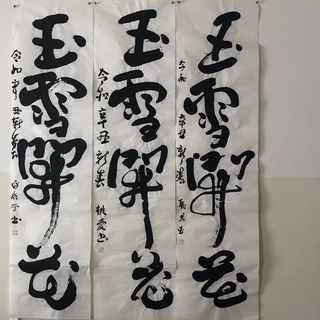 玉雪開花
令和辛丑新春
玉雪開花
令和辛丑新春 桃愛書
玉雪開花
令和辛丑新春